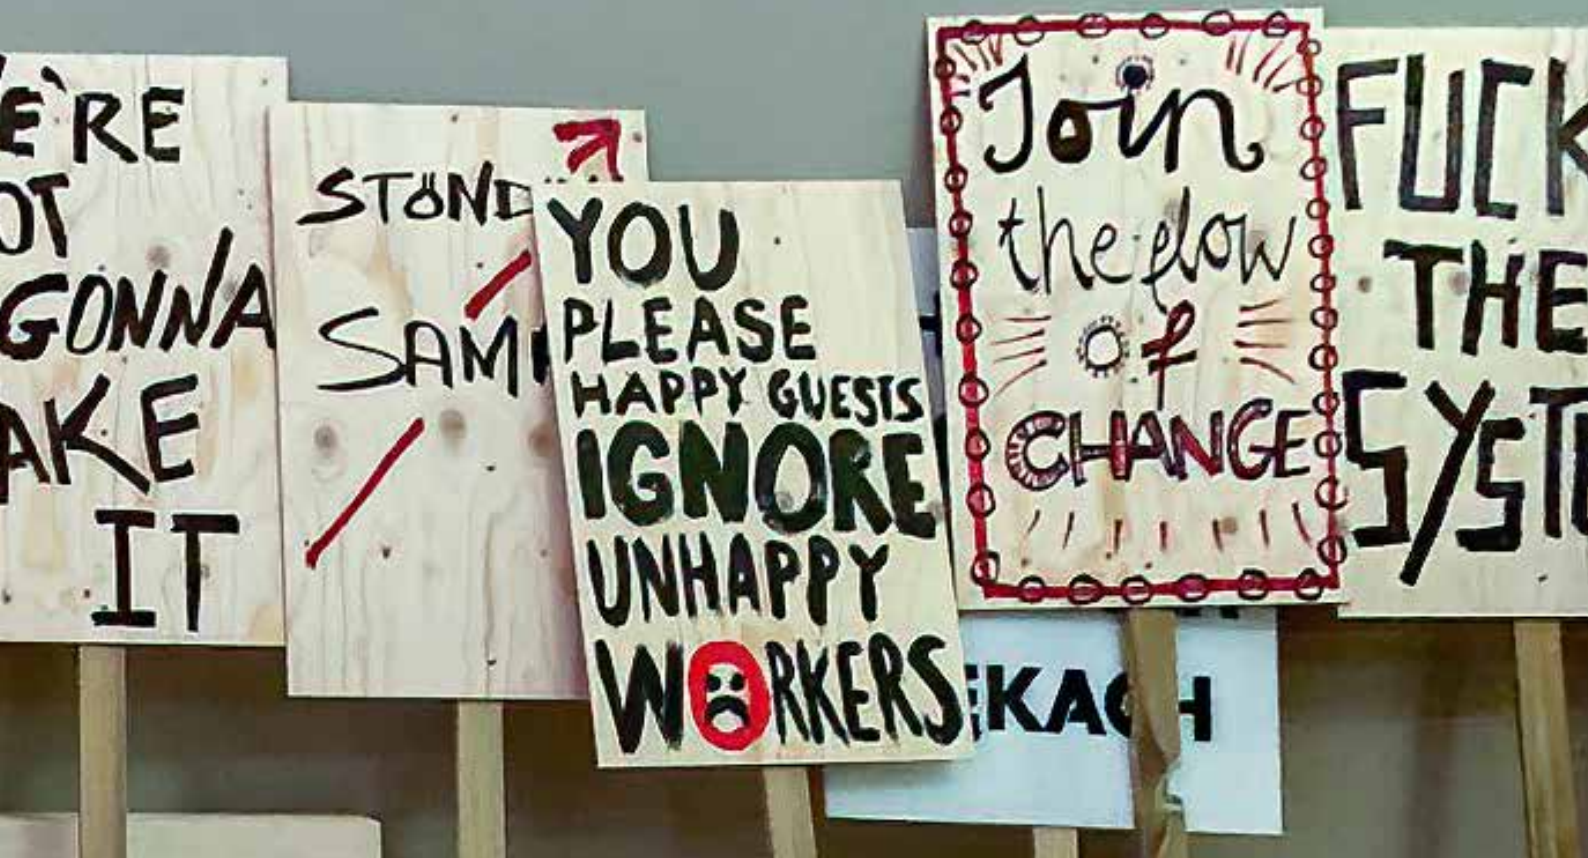 E'RE
OT
GONNA
AKE
IT
STÖND
SAM
YOU
PLEASE
HAPPY GUESTS
IGNORE
UNHAPPY
WORKERS
Join
the flow
of
CHANGE
EKACH
FUCK
THE
SYSTE